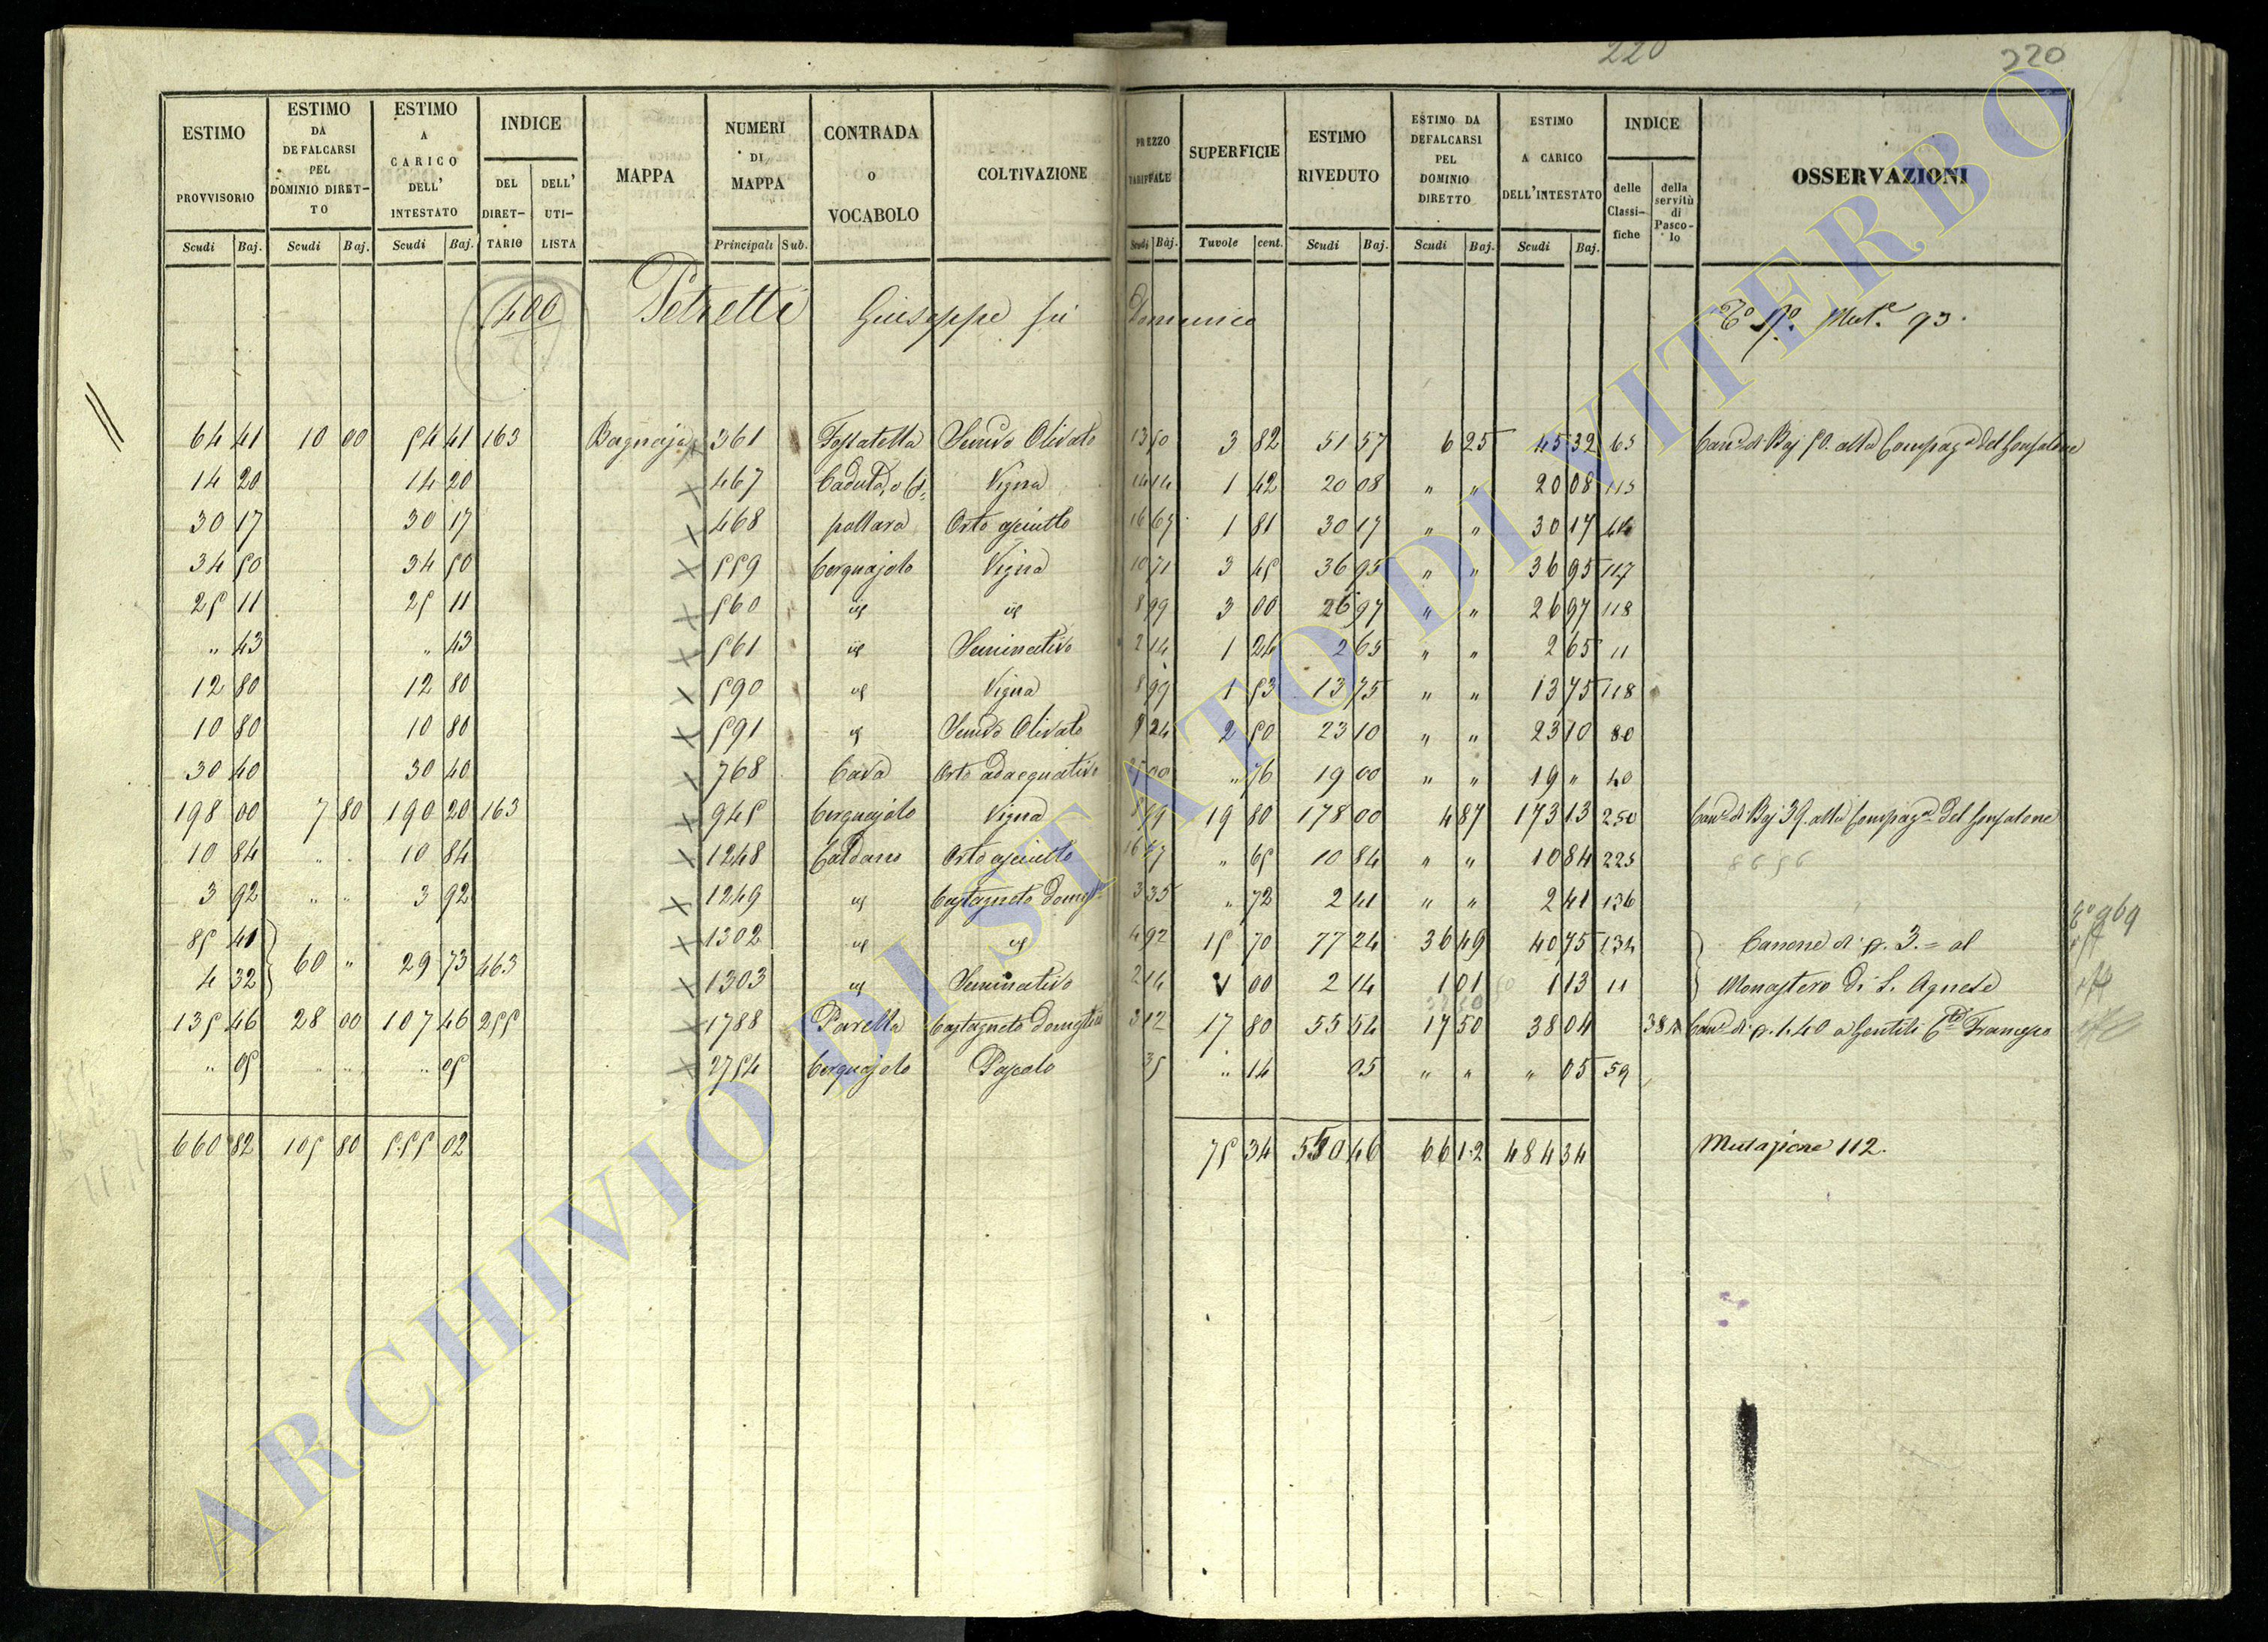 220 220
ESTIMO PROVVISORIO | ESTIMO DA DEFALCARSI PEL DOMINIO DIRET-TO | ESTIMO A CARICO DELL' INTESTATO | INDICE DEL DIRET-TARIO | DELL' UTI-LISTA | MAPPA | NUMERI DI MAPPA | CONTRADA o VOCABOLO | COLTIVAZIONE | PREZZO TARIFFALE | SUPERFICIE | ESTIMO RIVEDUTO | ESTIMO DA DEFALCARSI PEL DOMINIO DIRETTO | ESTIMO A CARICO DELL'INTESTATO | INDICE delle Classi-fiche | della servitù di Pasco-lo | OSSERVAZIONI
Scudi Baj. | Scudi Baj. | Scudi Baj. | Principali Sub. | Scudi Baj. | Tavole cent. | Scudi Baj. | Scudi Baj. | Scudi Baj.
400 Petretti Giuseppe fu Domenico Mut.e 93.
64 41 | 10 00 | 54 41 | 163 | Bagnaja | 361 | Fossatella | Semvo Olivato | 13 50 | 3 82 | 51 57 | 6 25 | 45 32 | 65 | Cane di Baj 50. alla Compaga del Gonfalone
14 20 | 14 20 | X 467 | Caduta, o | Vigna | 14 14 | 1 42 | 20 08 | " " | 20 08 | 115
30 17 | 30 17 | X 468 | pallara | Orto asciutto | 16 67 | 1 81 | 30 17 | " " | 30 17 | 44
34 50 | 34 50 | X 559 | Cerquajolo | Vigna | 10 71 | 3 45 | 36 95 | " " | 36 95 | 117
25 11 | 25 11 | X 560 | id | id | 8 99 | 3 00 | 26 97 | " " | 26 97 | 118
" 43 | " 43 | X 561 | id | Seminativo | 2 14 | 1 24 | 2 65 | " " | 2 65 | 11
12 80 | 12 80 | X 590 | id | Vigna | 8 99 | 1 53 | 13 75 | " " | 13 75 | 118
10 80 | 10 80 | X 591 | id | Semvo Olivato | 9 24 | 2 50 | 23 10 | " " | 23 10 | 80
30 40 | 30 40 | X 768 | Cava | Orto adacquativo | 25 00 | " 76 | 19 00 | " " | 19 " | 40
198 00 | 7 80 | 190 20 | 163 | X 945 | Cerquajolo | Vigna | 8 99 | 19 80 | 178 00 | 4 87 | 173 13 | 250 | Cane di Baj 39. alla Compaga del Gonfalone
10 84 | " " | 10 84 | X 1248 | Caldano | Orto asciutto | 16 67 | " 65 | 10 84 | " " | 10 84 | 225
3 92 | " " | 3 92 | X 1249 | id | Castagneto Domesto | 3 35 | " 72 | 2 41 | " " | 2 41 | 136 | 969
85 41 | 60 " | 29 73 | 463 | X 1302 | id | id | 4 92 | 15 70 | 77 24 | 36 49 | 40 75 | 134 | Canone di p. 3. = al
4 32 | X 1303 | id | Seminativo | 2 14 | 1 00 | 2 14 | 1 01 | 1 13 | 11 | Monastero di S. Agnese
135 46 | 28 00 | 107 46 | 255 | X 1788 | Parella | Castagneto Domestico | 3 12 | 17 80 | 55 54 | 17 50 | 38 04 | Cane di p. 1.40 a Gentili Francesco
" 05 | " " | " 05 | X 2754 | Cerquajolo | Pascolo | 35 | " 14 | 05 | " " | " 05 | 59
660 82 | 105 80 | 555 02 | 75 34 | 550 46 | 66 12 | 484 34 | Mutazione 112.
ARCHIVIO DI STATO DI VITERBO